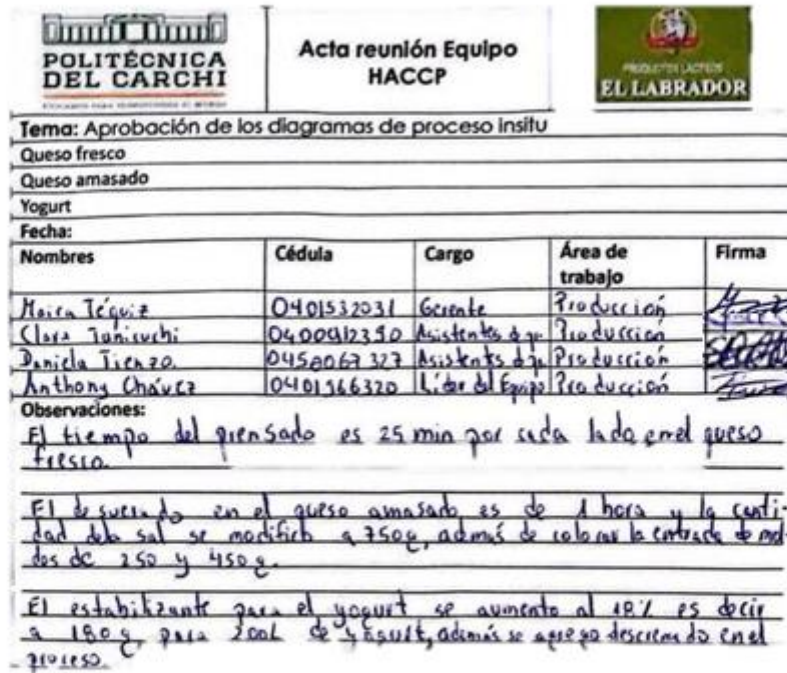 POLITÉCNICA
DEL CARCHI
Acta reunión Equipo
HACCP
PRODUCTOS LACTEOS
EL LABRADOR
Tema: Aprobación de los diagramas de proceso insitu
Queso fresco
Queso amasado
Yogurt
Fecha:
Nombres Cédula Cargo Área de trabajo Firma
0401532031 Gerente Producción
Clara 0400912390 Asistentes Producción
Daniela Tienzo. 0450067327 Asistents Producción
Anthony Chávez 0401366320 Lider del Equipo Producción
Observaciones:
El tiempo del prensado es 25 min por cada lado en el queso
fresco.
El desuerado en el queso amasado es de 1 hora y la canti-
dad de la sal se modifico a 750g, además de colocar la entrada de mol-
dos de 250 y 450 g.
El estabilizante para el yogurt se aumento al 18% es decir
a 180g para 200L de yogurt, además se agrego descremado en el
proceso.